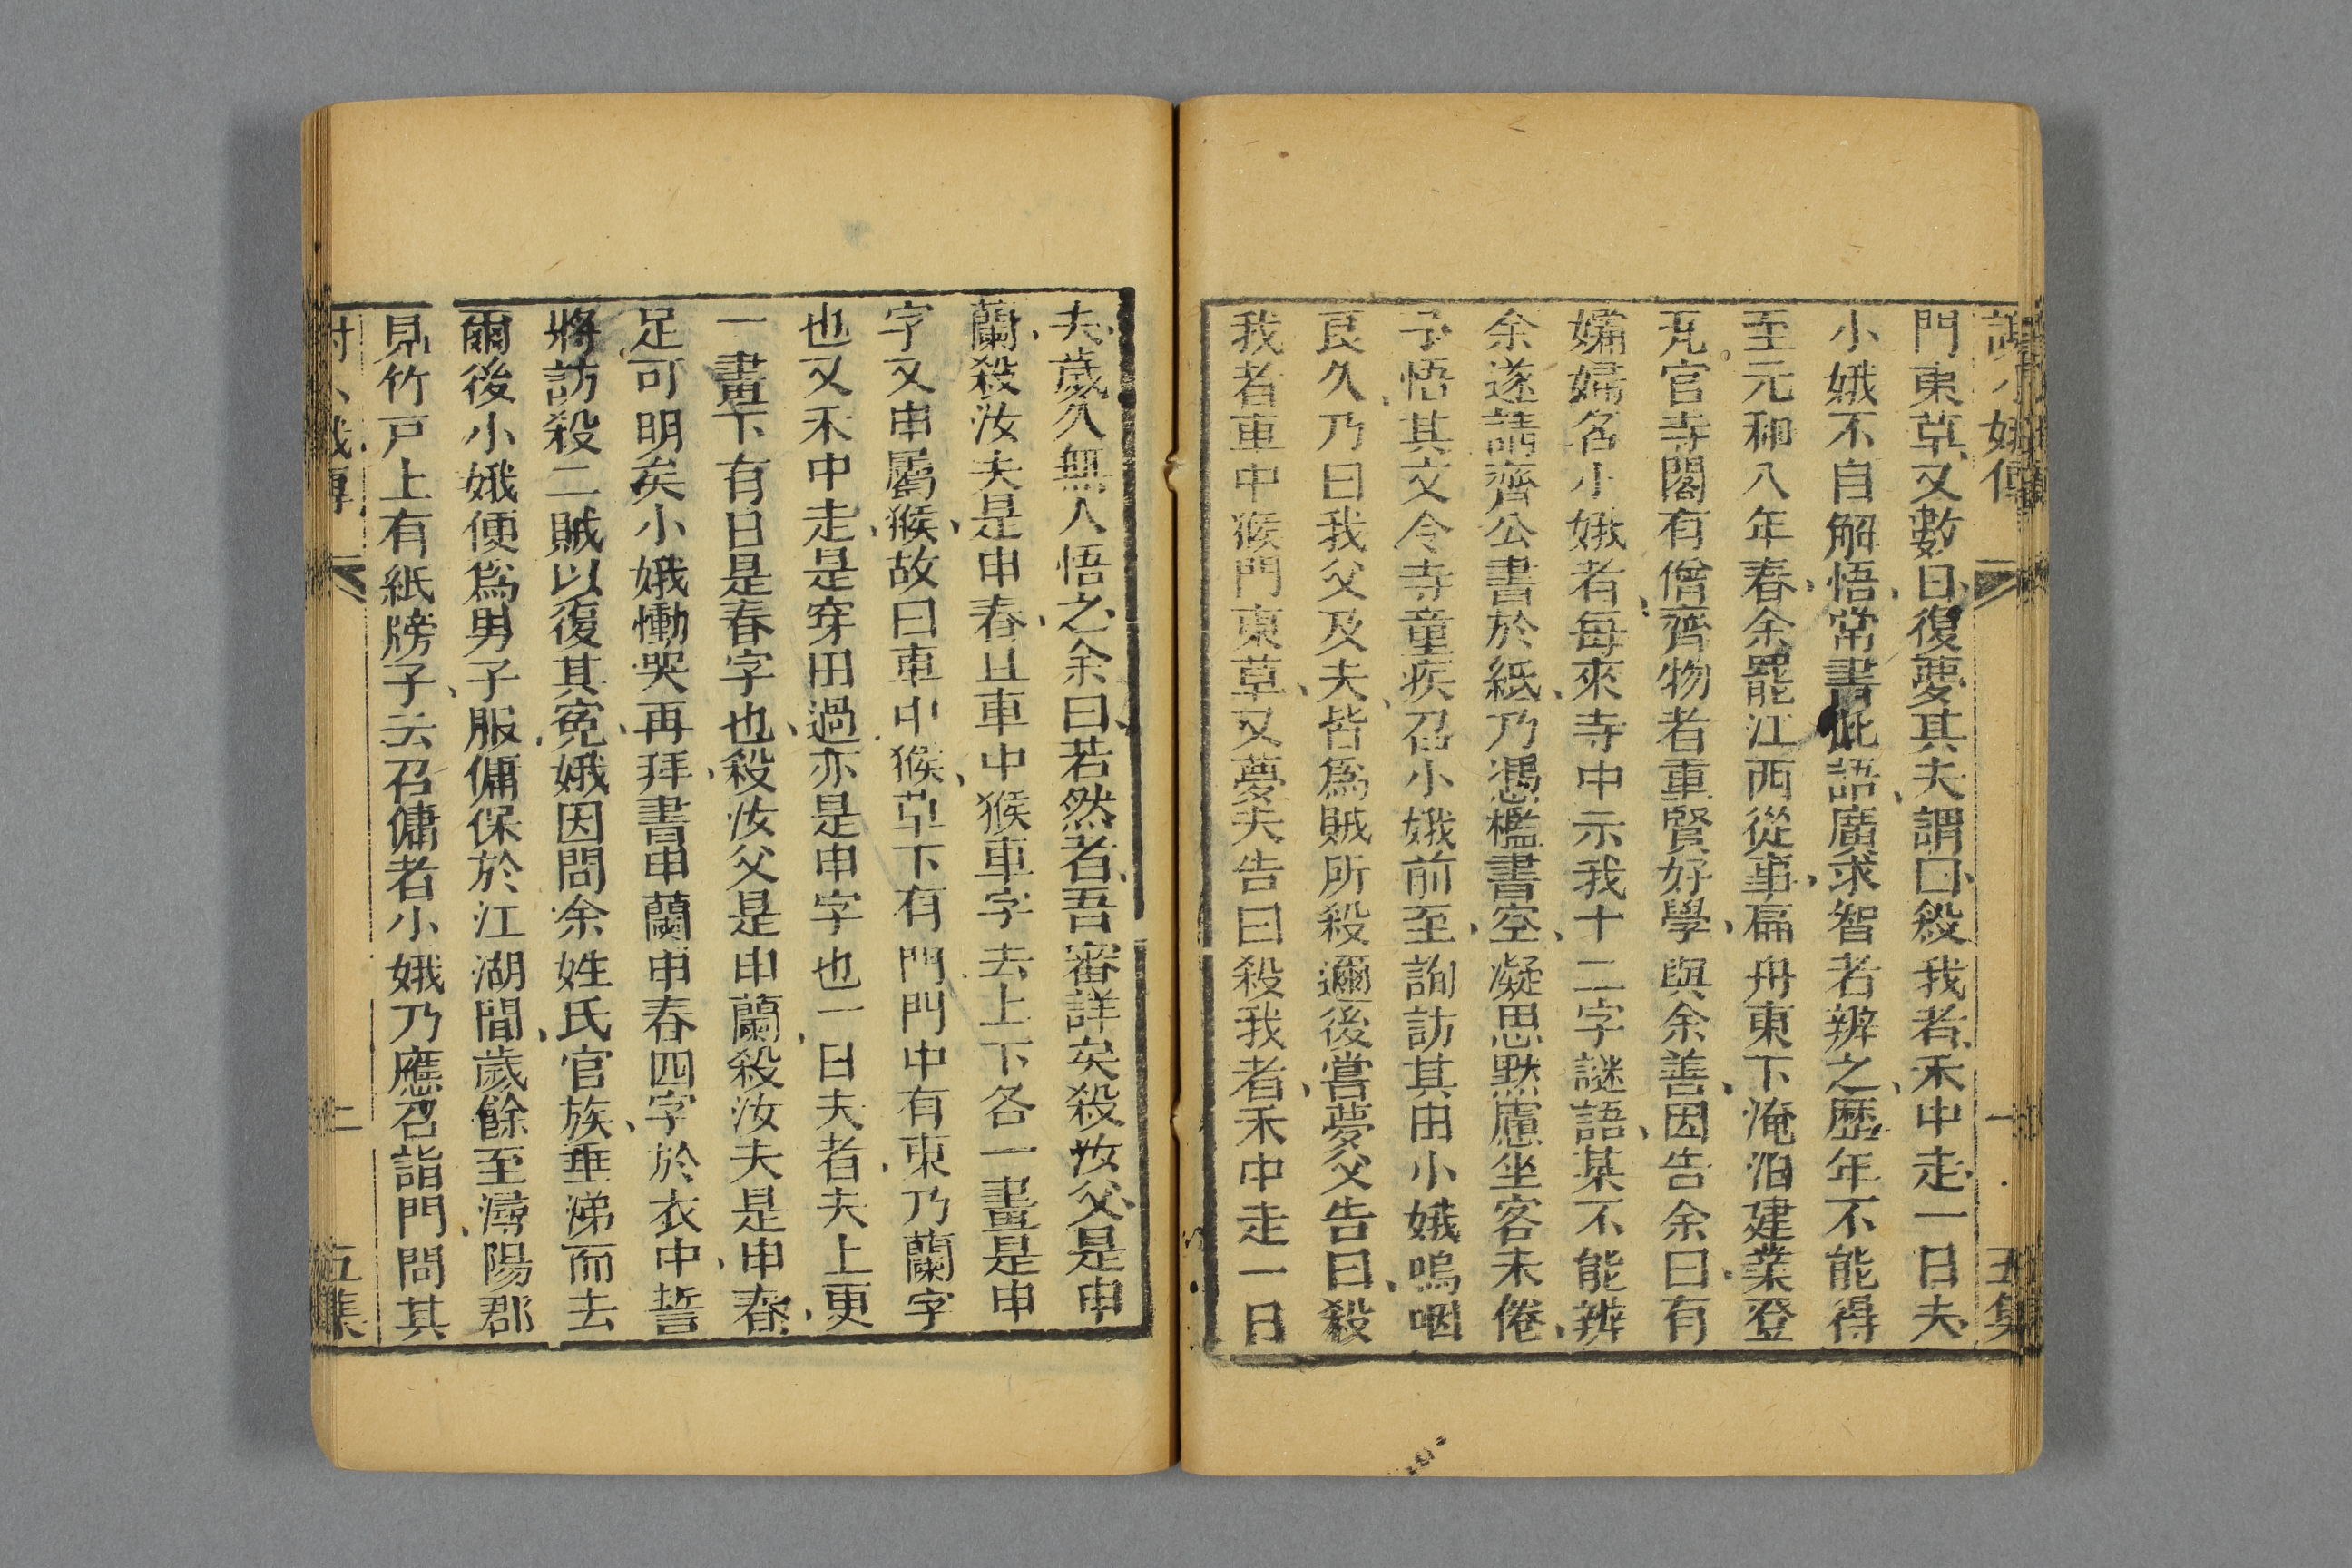 謝小娥傳 一 五集
門東草又數日復夢其夫謂曰殺我者禾中走一日夫
小娥不自解悟常書此語廣求智者辨之歷年不能得
至元和八年春余罷江西從事扁舟東下淹泊建業登
瓦官寺閣有僧齊物者重賢好學與余善因告余曰有
孀婦名小娥者每來寺中示我十二字謎語某不能辨
余遂請齊公書於紙乃憑檻書空凝思默慮坐客未倦
予悟其文令寺童疾召小娥前至詢訪其由小娥嗚咽
良久乃曰我父及夫皆爲賊所殺邇後嘗夢父告曰殺
我者車中猴門東草又夢夫告曰殺我者禾中走一日
夫歲久無人悟之余曰若然者吾審詳矣殺汝父是申
蘭殺汝夫是申春且車中猴車字去上下各一畫是申
字又申屬猴故曰車中猴草下有門門中有東乃蘭字
也又禾中走是穿田過亦是申字也一日夫者夫上更
一畫下有日是春字也殺汝父是申蘭殺汝夫是申春
足可明矣小娥慟哭再拜書申蘭申春四字於衣中誓
將訪殺二賊以復其寃娥因問余姓氏官族垂涕而去
爾後小娥便爲男子服傭保於江湖間歲餘至潯陽郡
見竹戸上有紙牓子云召傭者小娥乃應召詣門問其
五集